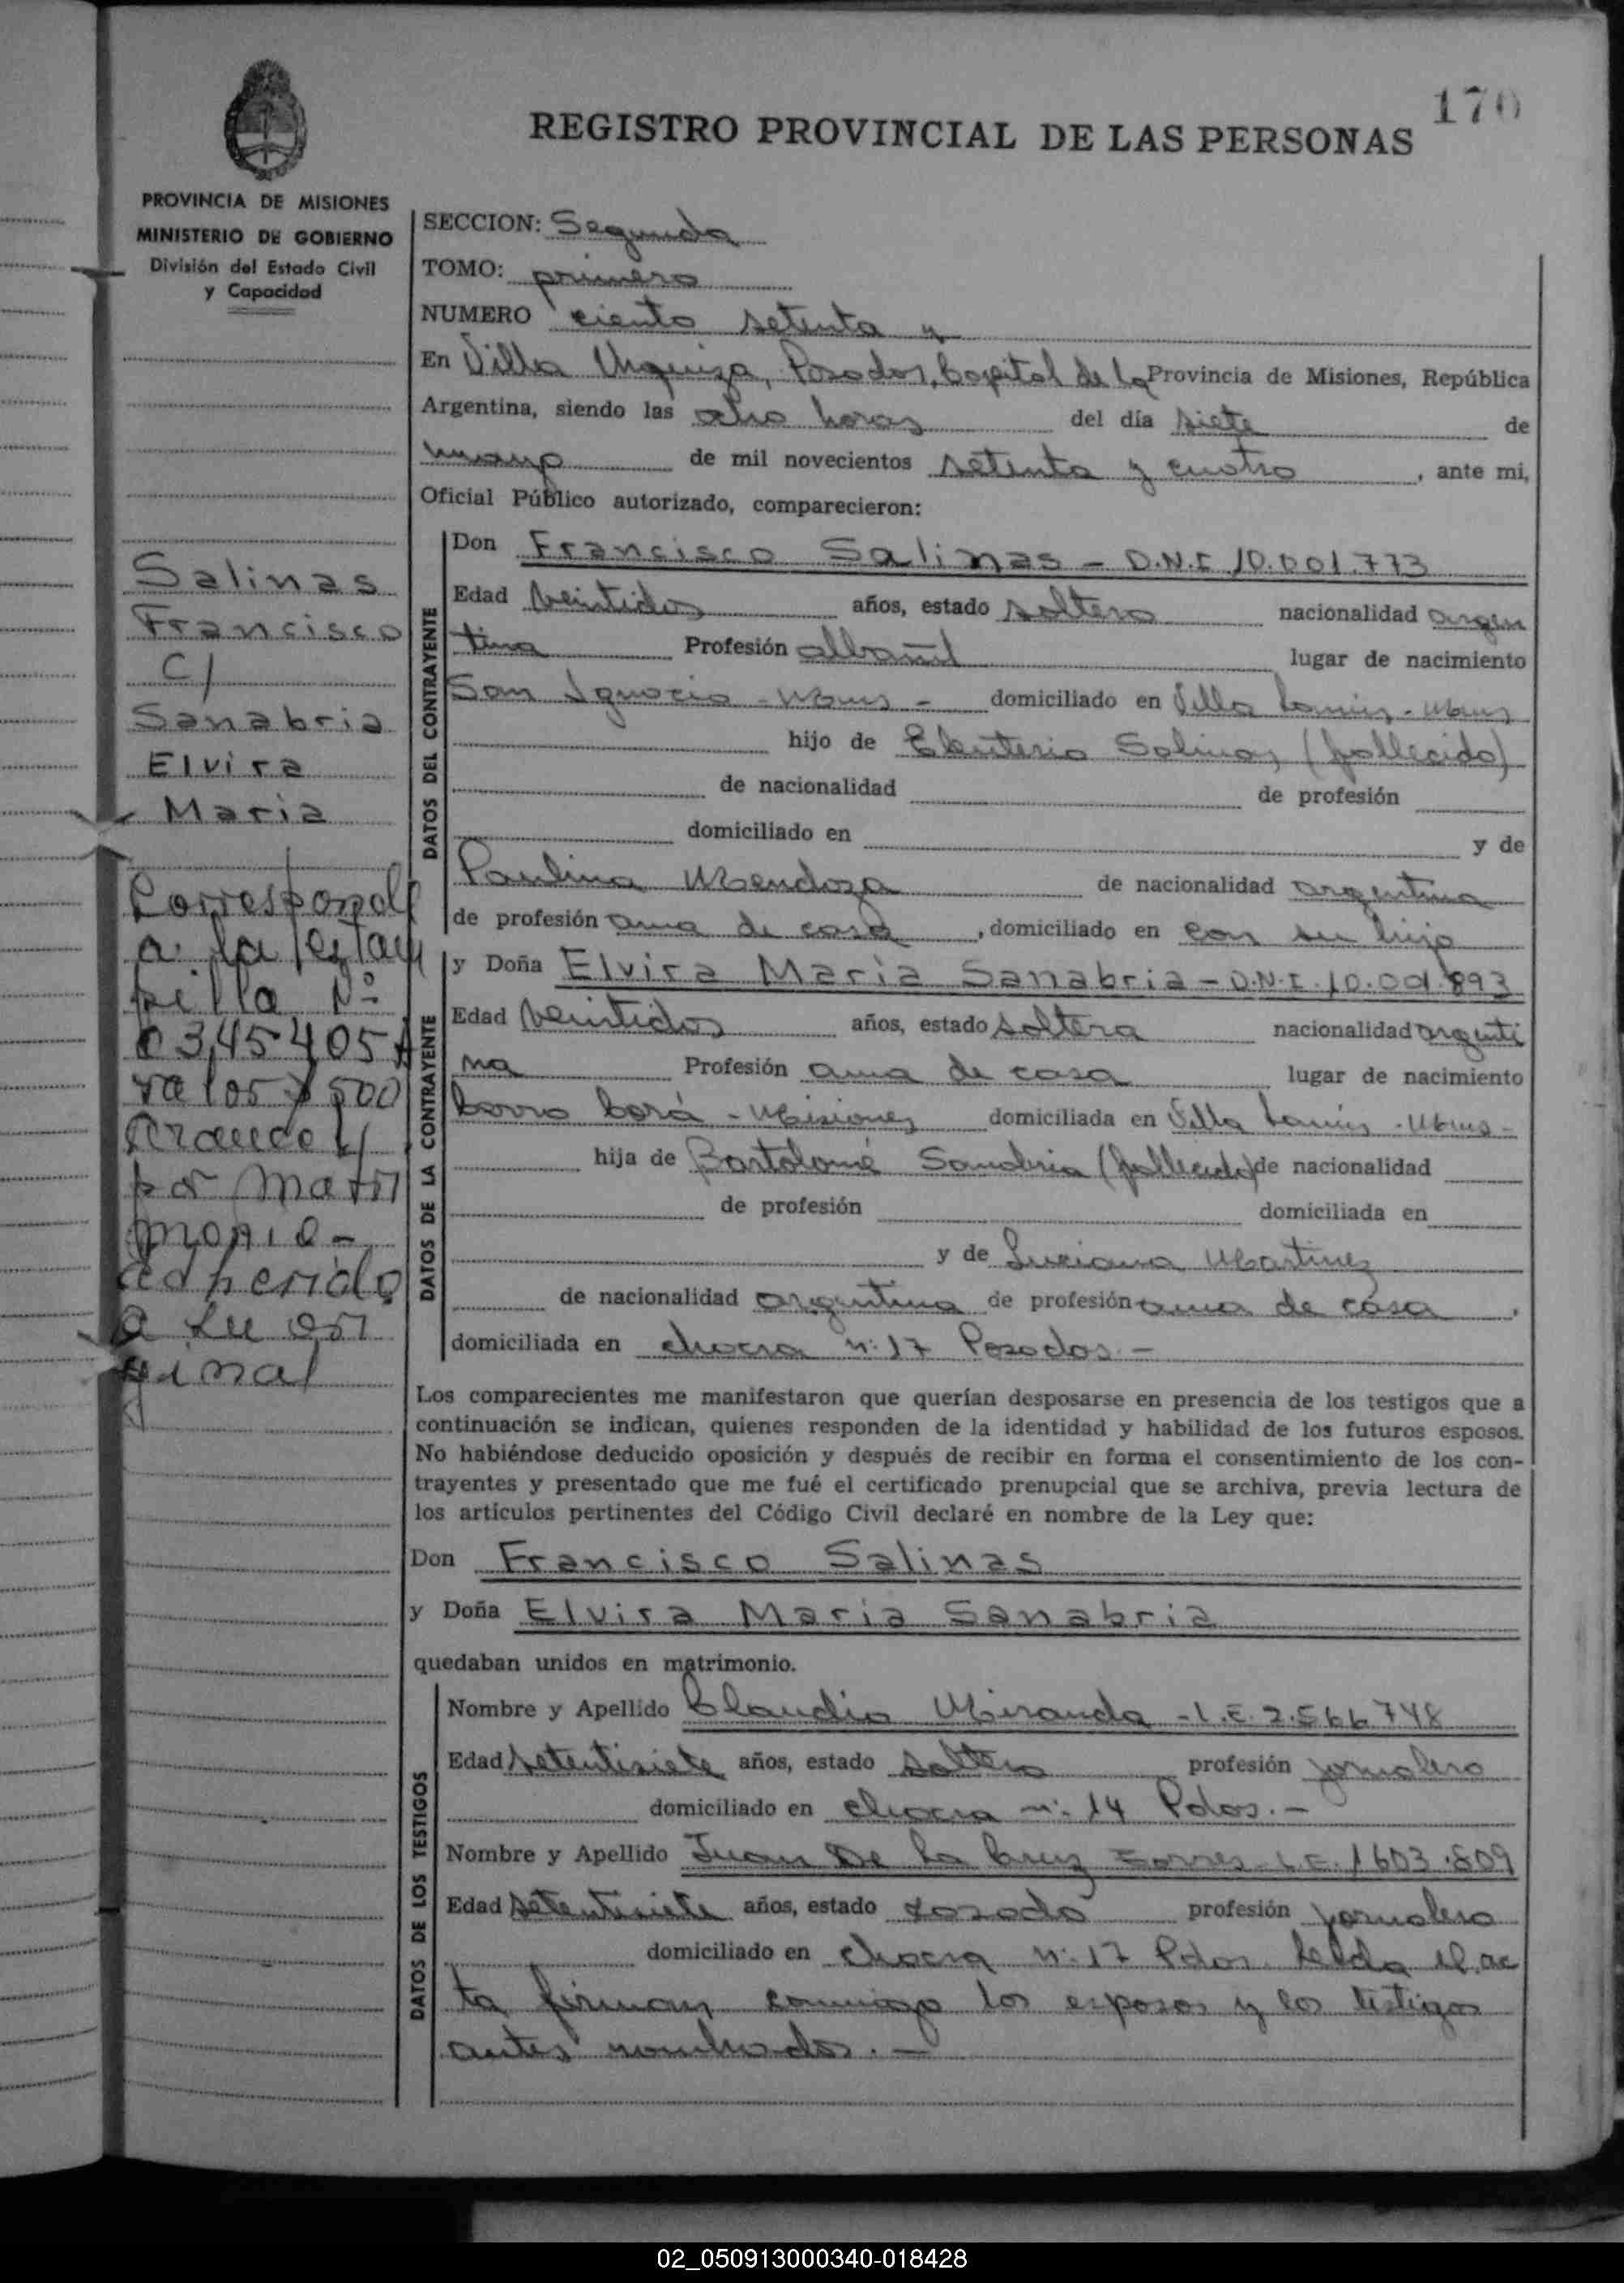 170
REGISTRO PROVINCIAL DE LAS PERSONAS
PROVINCIA DE MISIONES
MINISTERIO DE GOBIERNO
División del Estado Civil
y Capacidad
Salinas
Francisco
C/
Sanabria
Elvira
Maria
Corresponde
a la estam
pilla Nº
0345405A
valor $ 500
Arancel
por matri
monio-
adherido
a su ori
ginal
SECCION: Segunda
TOMO: primero
NUMERO ciento setenta
En Villa Urquiza, Posadas, Capital de la Provincia de Misiones, República
Argentina, siendo las ocho horas del día siete de
mayo de mil novecientos setenta y cuatro, ante mi,
Oficial Público autorizado, comparecieron:
DATOS DEL CONTRAYENTE
Don Francisco Salinas - D.N.I 10.001.773
Edad veintidos años, estado soltero nacionalidad argen
tina Profesión albañil lugar de nacimiento
San Ignacio - Mnes - domiciliado en Villa Lanús - Mnes
hijo de Eleuterio Salinas (fallecido)
de nacionalidad de profesión
domiciliado en y de
Paulina Mendoza de nacionalidad argentina
de profesión ama de casa, domiciliado en con su hijo
DATOS DE LA CONTRAYENTE
y Doña Elvira Maria Sanabria - D.N.I. 10.001.893
Edad veintidos años, estado soltera nacionalidad argenti
na Profesión ama de casa lugar de nacimiento
Corá - Misiones domiciliada en Villa Lanús - Mnes -
hija de Bartolomé Sanabria (fallecido) de nacionalidad
de profesión domiciliada en
y de Luciana Martinez
de nacionalidad argentina de profesión ama de casa,
domiciliada en chacra nº 17 Posadas. -
Los comparecientes me manifestaron que querían desposarse en presencia de los testigos que a
continuación se indican, quienes responden de la identidad y habilidad de los futuros esposos.
No habiéndose deducido oposición y después de recibir en forma el consentimiento de los con-
trayentes y presentado que me fué el certificado prenupcial que se archiva, previa lectura de
los artículos pertinentes del Código Civil declaré en nombre de la Ley que:
Don Francisco Salinas
y Doña Elvira Maria Sanabria
quedaban unidos en matrimonio.
DATOS DE LOS TESTIGOS
Nombre y Apellido Claudio Miranda - L.E. 2.566.748
Edad setentisiete años, estado soltero profesión jornalero
domiciliado en chacra nº 14 Pdas. -
Nombre y Apellido Juan De La Cruz Torres - L.E. 1603.809
Edad setentisiete años, estado casado profesión jornalero
domiciliado en chacra nº 17 Pdas. Leida el ac
ta firman conmigo los esposos y los testigos
antes nombrados. -
02_050913000340-018428